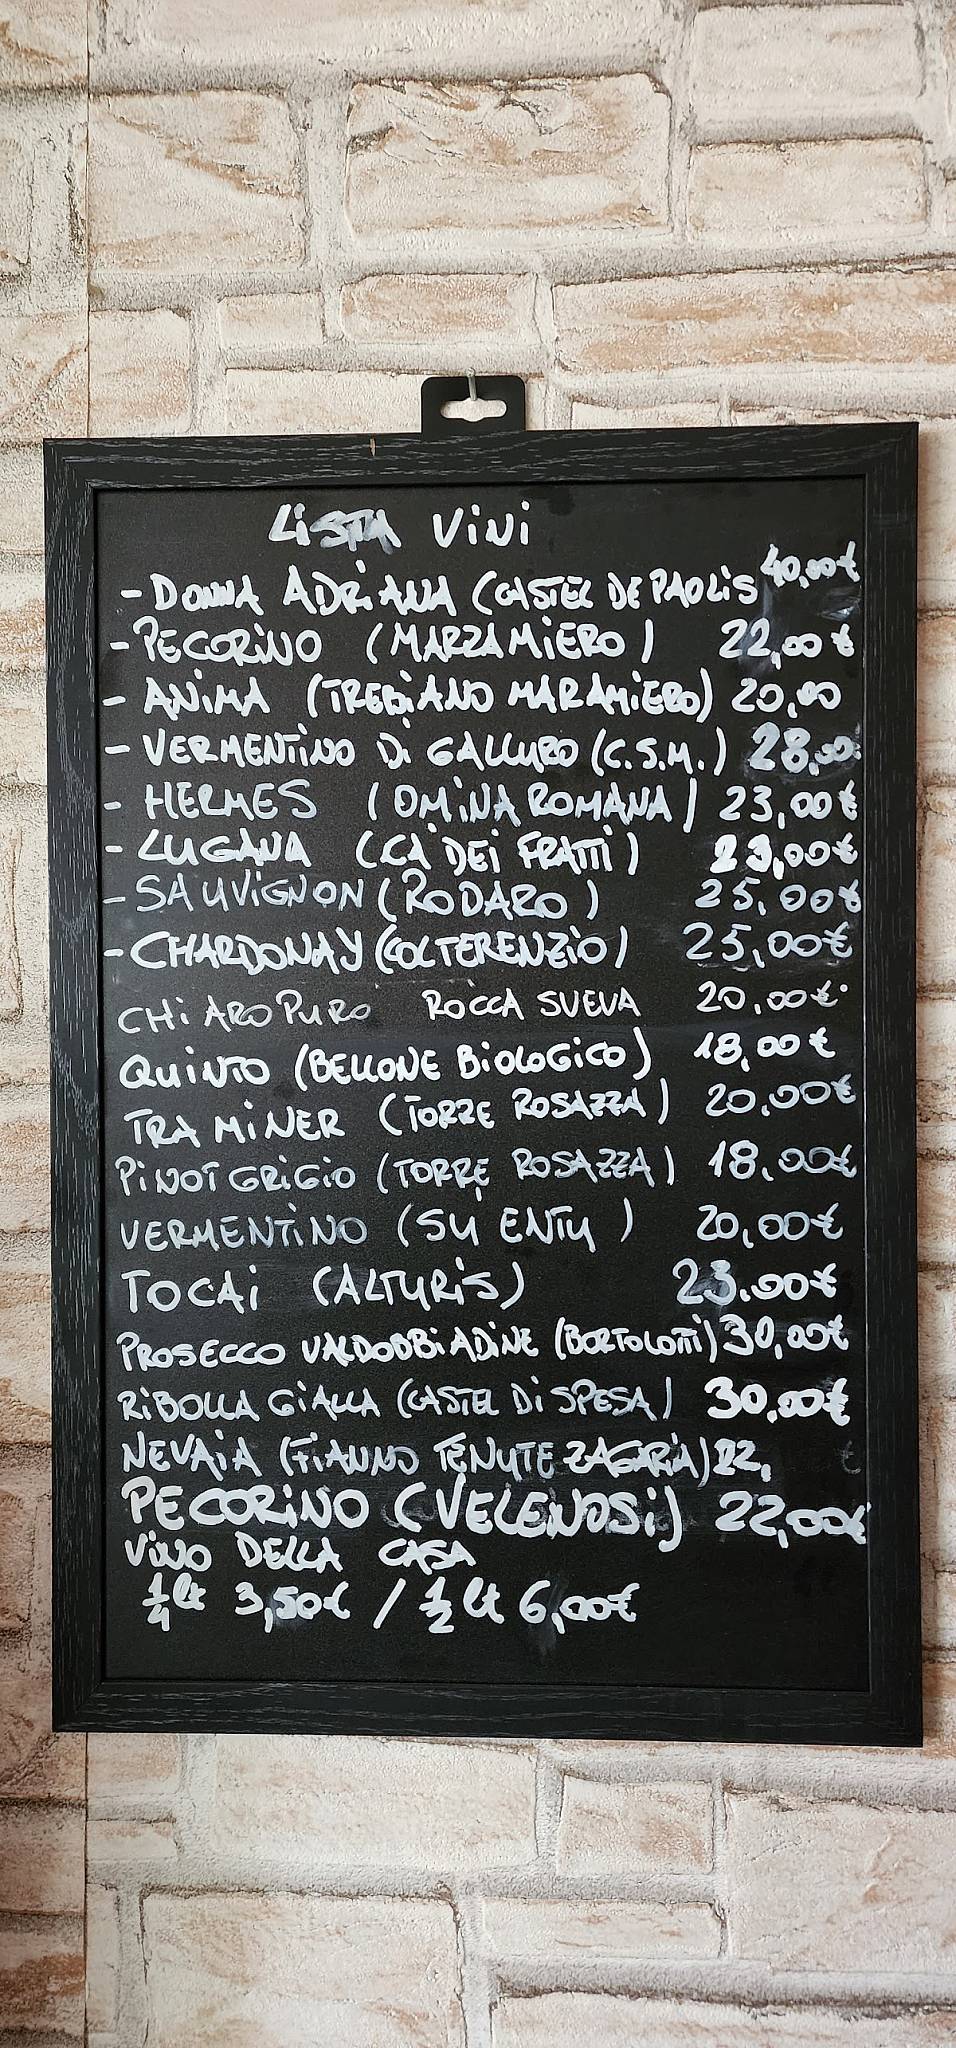 LiSTA ViNi
- DONNA ADRiANA (CASTEL DE PAOLiS 40,00€
- PECORiNO (MARZAMiERO) 22,00€
- ANiMA (TREBiANO MARAMiERO) 20,00
- VERMENTiNO Di GALLURO (C.S.M.) 28,00
- HERMES (OMiNA ROMANA) 23,00€
- LUGANA (CA' DEi FRATTi) 23,00€
- SAUViGNON (RODARO) 25,00€
- CHARDONAY (COLTERENZiO) 25,00€
CHiARO PURO ROCCA SVEVA 20,00€
QUiNTO (BELLONE BiOLOGiCO) 18,00€
TRAMiNER (TORRE ROSAZZA) 20,00€
PiNOT GRiGiO (TORRE ROSAZZA) 18,00€
VERMENTiNO (SU ENTU) 20,00€
TOCAi (ALTURiS) 23.00€
PROSECCO VALDOBBiADiNE (BORTOLOTTi) 30,00€
RiBOLLA GiALLA (CASTEL Di SPESA) 30,00€
NEVAiA (FiANNO TENUTE ZAGARiA) 22, €
PECORiNO (VELENOSi) 22,00€
ViNO DELLA CASA
1/4 lt 3,50€ / 1/2 lt 6,00€